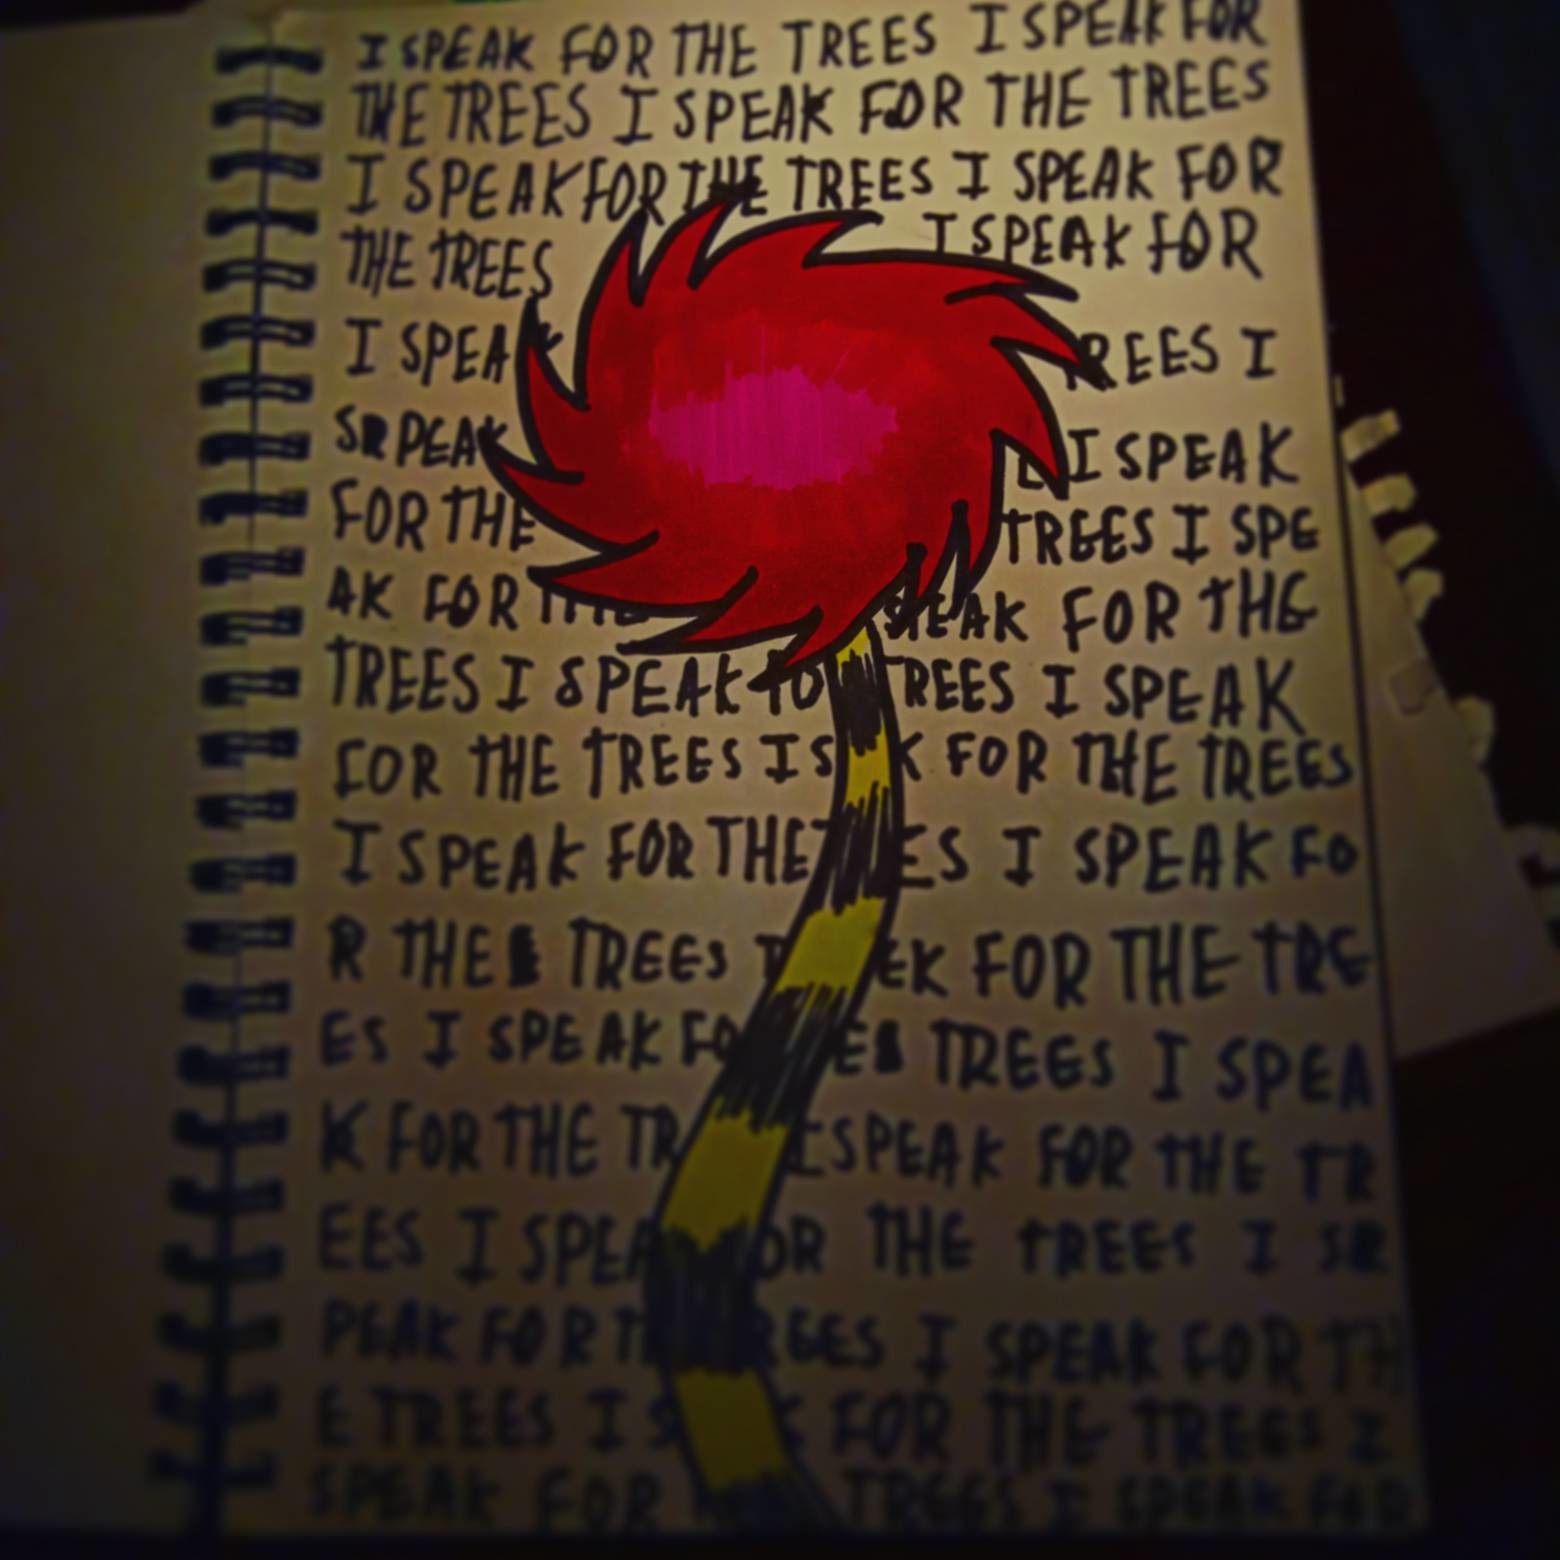 I SPEAK FOR THE TREES I SPEAK FOR
THE TREES I SPEAK FOR THE TREES
I SPEAK FOR THE TREES I SPEAK FOR
THE TREES I SPEAK FOR
I SPEAK REES I
SR PEAK E I SPEAK
FOR THE TREES I SPE
AK FOR THE SPEAK FOR THE
TREES I SPEAK FO TREES I SPEAK
FOR THE TREES I S K FOR THE TREES
I SPEAK FOR THE ES I SPEAK FO
R THE TREES EK FOR THE TRE
ES I SPEAK FO E TREES I SPEA
K FOR THE TR I SPEAK FOR THE TR
EES I SPEA OR THE TREES I SR
PEAK FOR T REES I SPEAK FOR TH
E TREES I S K FOR THE TREES I
SPEAK FOR TREES I SPEAK FOR